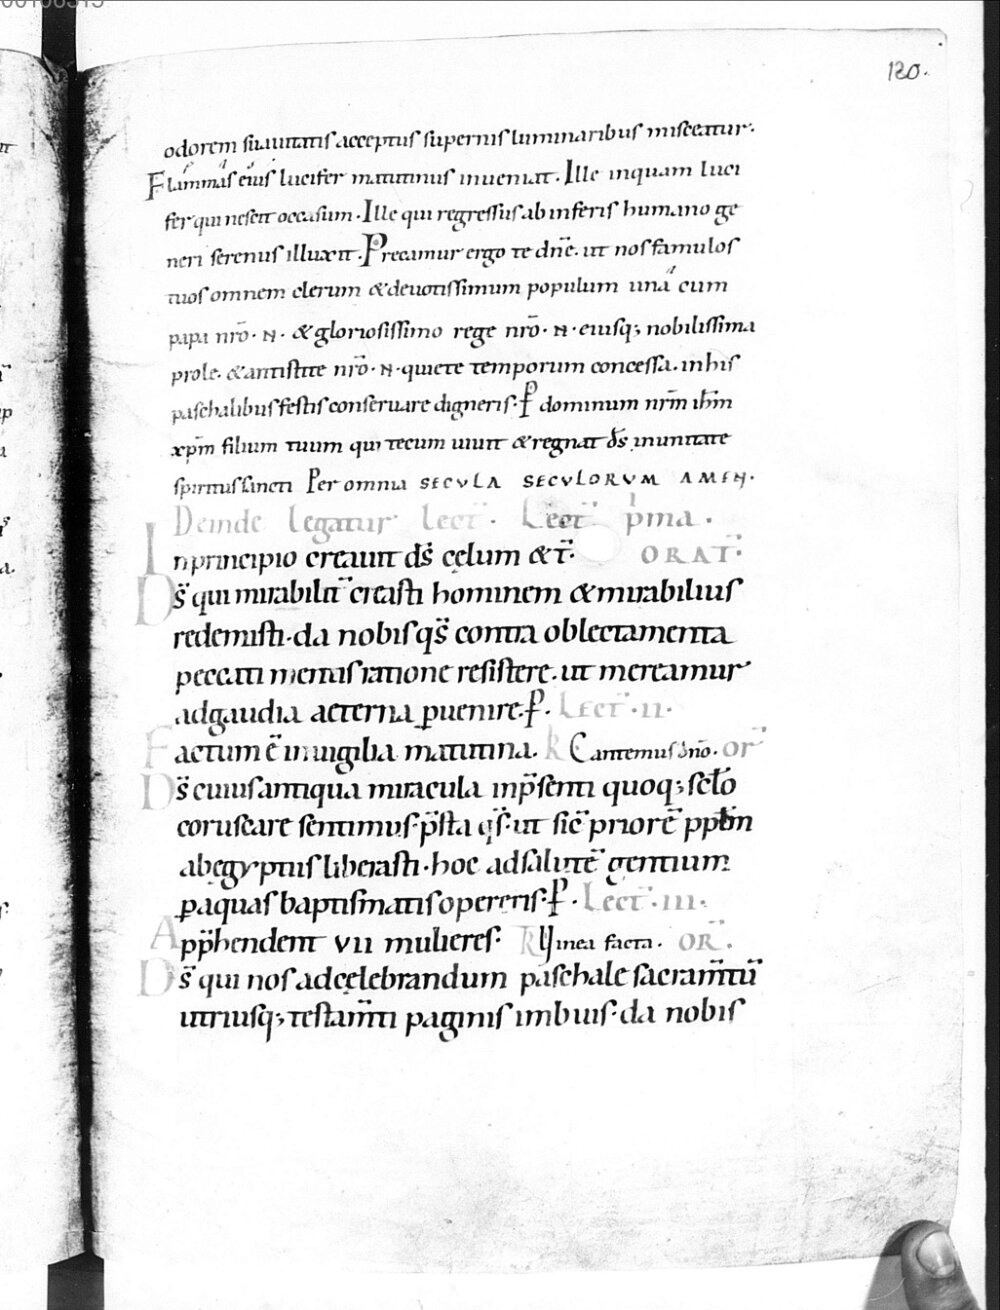 120.
odorem suauitatis acceptus supernis luminaribus misceatur.
Flammas eius lucifer matutinus inueniat. Ille inquam luci
fer qui nescit occasum. Ille qui regressus ab inferis humano ge
neri serenus illuxit. Precamur ergo te dn̄e. ut nos famulos
tuos omnem clerum &deuotissimum populum una cum
papa nr̄o. N. &gloriosissimo rege nr̄o. N. eiusq; nobilissima
prole. &antistite nr̄o. N. quiete temporum concessa. in his
paschalibus festis conseruare digneris. P dominum nr̄m ih̄m
xp̄m filium tuum qui tecum uiuit &regnat ds̄ inunitate
spiritus sancti Per omnia SECULA SECULORUM AMEN.
Deinde legatur lect̄. Lect̄ pima.
In principio creauit ds̄ cęlum &t̄. ORAT̄.
Ds̄ qui mirabilit̄ creasti hominem &mirabilius
redemisti. da nobis qs̄ contra oblectamenta
peccati mentis ratione resistere. ut mereamur
ad gaudia aeterna puenire. P. Lect̄. II.
Factum ē inuigilia matutina. R Cantemus dn̄o. OR̄
Ds̄ cuius antiqua miracula inp̄senti quoq; sc̄lo
coruscare sentimus. p̄sta qs̄. ut sic̄ priorē pplm̄
ab ęgyptiis liberasti. hoc ad salutē gentium
p aquas baptismatis opereris. P. Lect̄. III.
App̄hendent VII mulieres. R Uinea facta. OR̄.
Ds̄ qui nos ad cęlebrandum paschale sacram̄tū
utriusq; testam̄ti paginis imbuis. da nobis